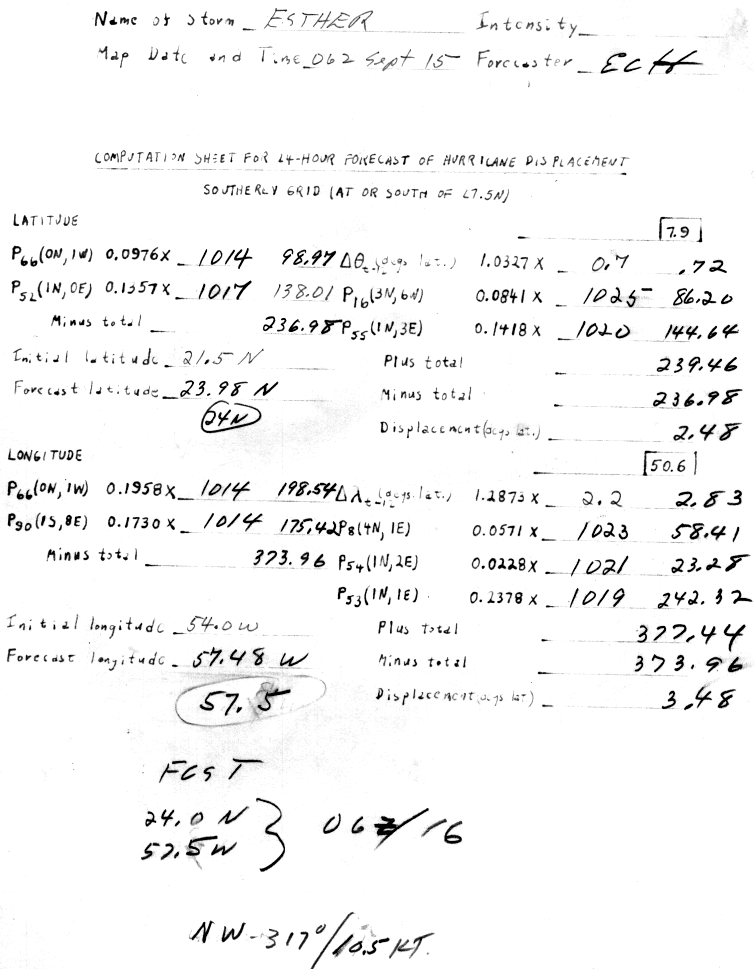 Name of Storm ESTHER Intensity
Map Date and Time 06Z Sept 15 Forecaster ECH
COMPUTATION SHEET FOR 24-HOUR FORECAST OF HURRICANE DISPLACEMENT
SOUTHERLY GRID (AT OR SOUTH OF 27.5N)
LATITUDE 7.9
P66(0N, 1W) 0.0976 X 1014 98.97 Δθt-12(degs lat.) 1.0327 X 0.7 .72
P52(1N, 0E) 0.1357 X 1017 138.01 P16(3N, 6W) 0.0841 X 1025 86.20
Minus total 236.98 P55(1N, 3E) 0.1418 X 1020 144.64
Initial latitude 21.5 N Plus total 239.46
Forecast latitude 23.98 N Minus total 236.98
24N Displacement (degs lat.) 2.48
LONGITUDE 50.6
P66(0N, 1W) 0.1958 X 1014 198.54 Δλt-12(degs. lat.) 1.2873 X 2.2 2.83
P90(1S, 8E) 0.1730 X 1014 175.42 P8(4N, 1E) 0.0571 X 1023 58.41
Minus total 373.96 P54(1N, 2E) 0.0228 X 1021 23.28
P53(1N, 1E) 0.2378 X 1019 242.32
Initial longitude 54.0 W Plus total 377.44
Forecast longitude 57.48 W Minus total 373.96
57.5 Displacement (degs lat) 3.48
FCST
24.0 N
57.5 W } 06Z/16
NW-317°/10.5 KT.